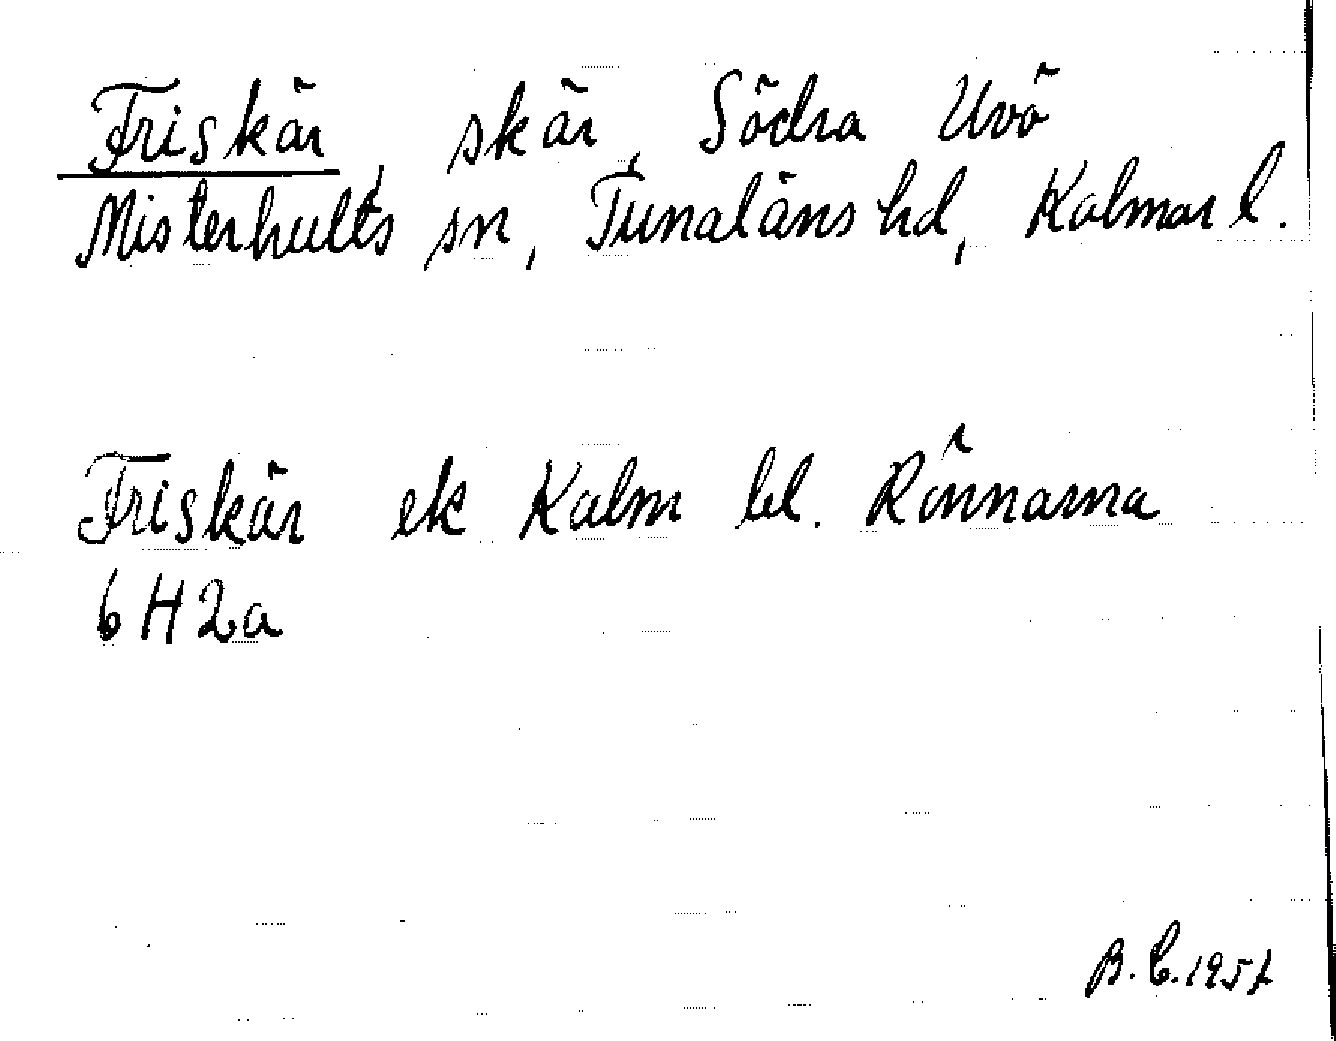 Friskär, skär, Södra Uvö
Misterhults sn, Tunaläns hd, Kalmar l.
Friskär ek Kalm bl. Rönnarna
6H2a
B.C. 1957